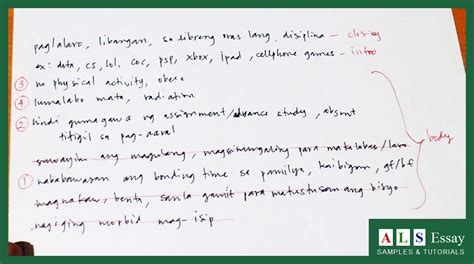 pag/alaro, libangan, sa libreng oras lang, disiplina – closing
ex: dota, cs, lol, coc, psp, xbox, ipad, cellphone games – intro
③ no physical activity, obese
④ lumalabo mata, radiation
② hindi gumagawa ng assignment/advance study, absent
titigil sa pag-aaral
suwayin ang magulang, magsinungaling para makalabas/laro
① nababawasan ang bonding time sa pamilya, kaibigan, gf/bf
magnakaw, benta, sanla gamit para matustusan ang bisyo
nagiging morbid mag-isip
body
ALS Essay
SAMPLES & TUTORIALS